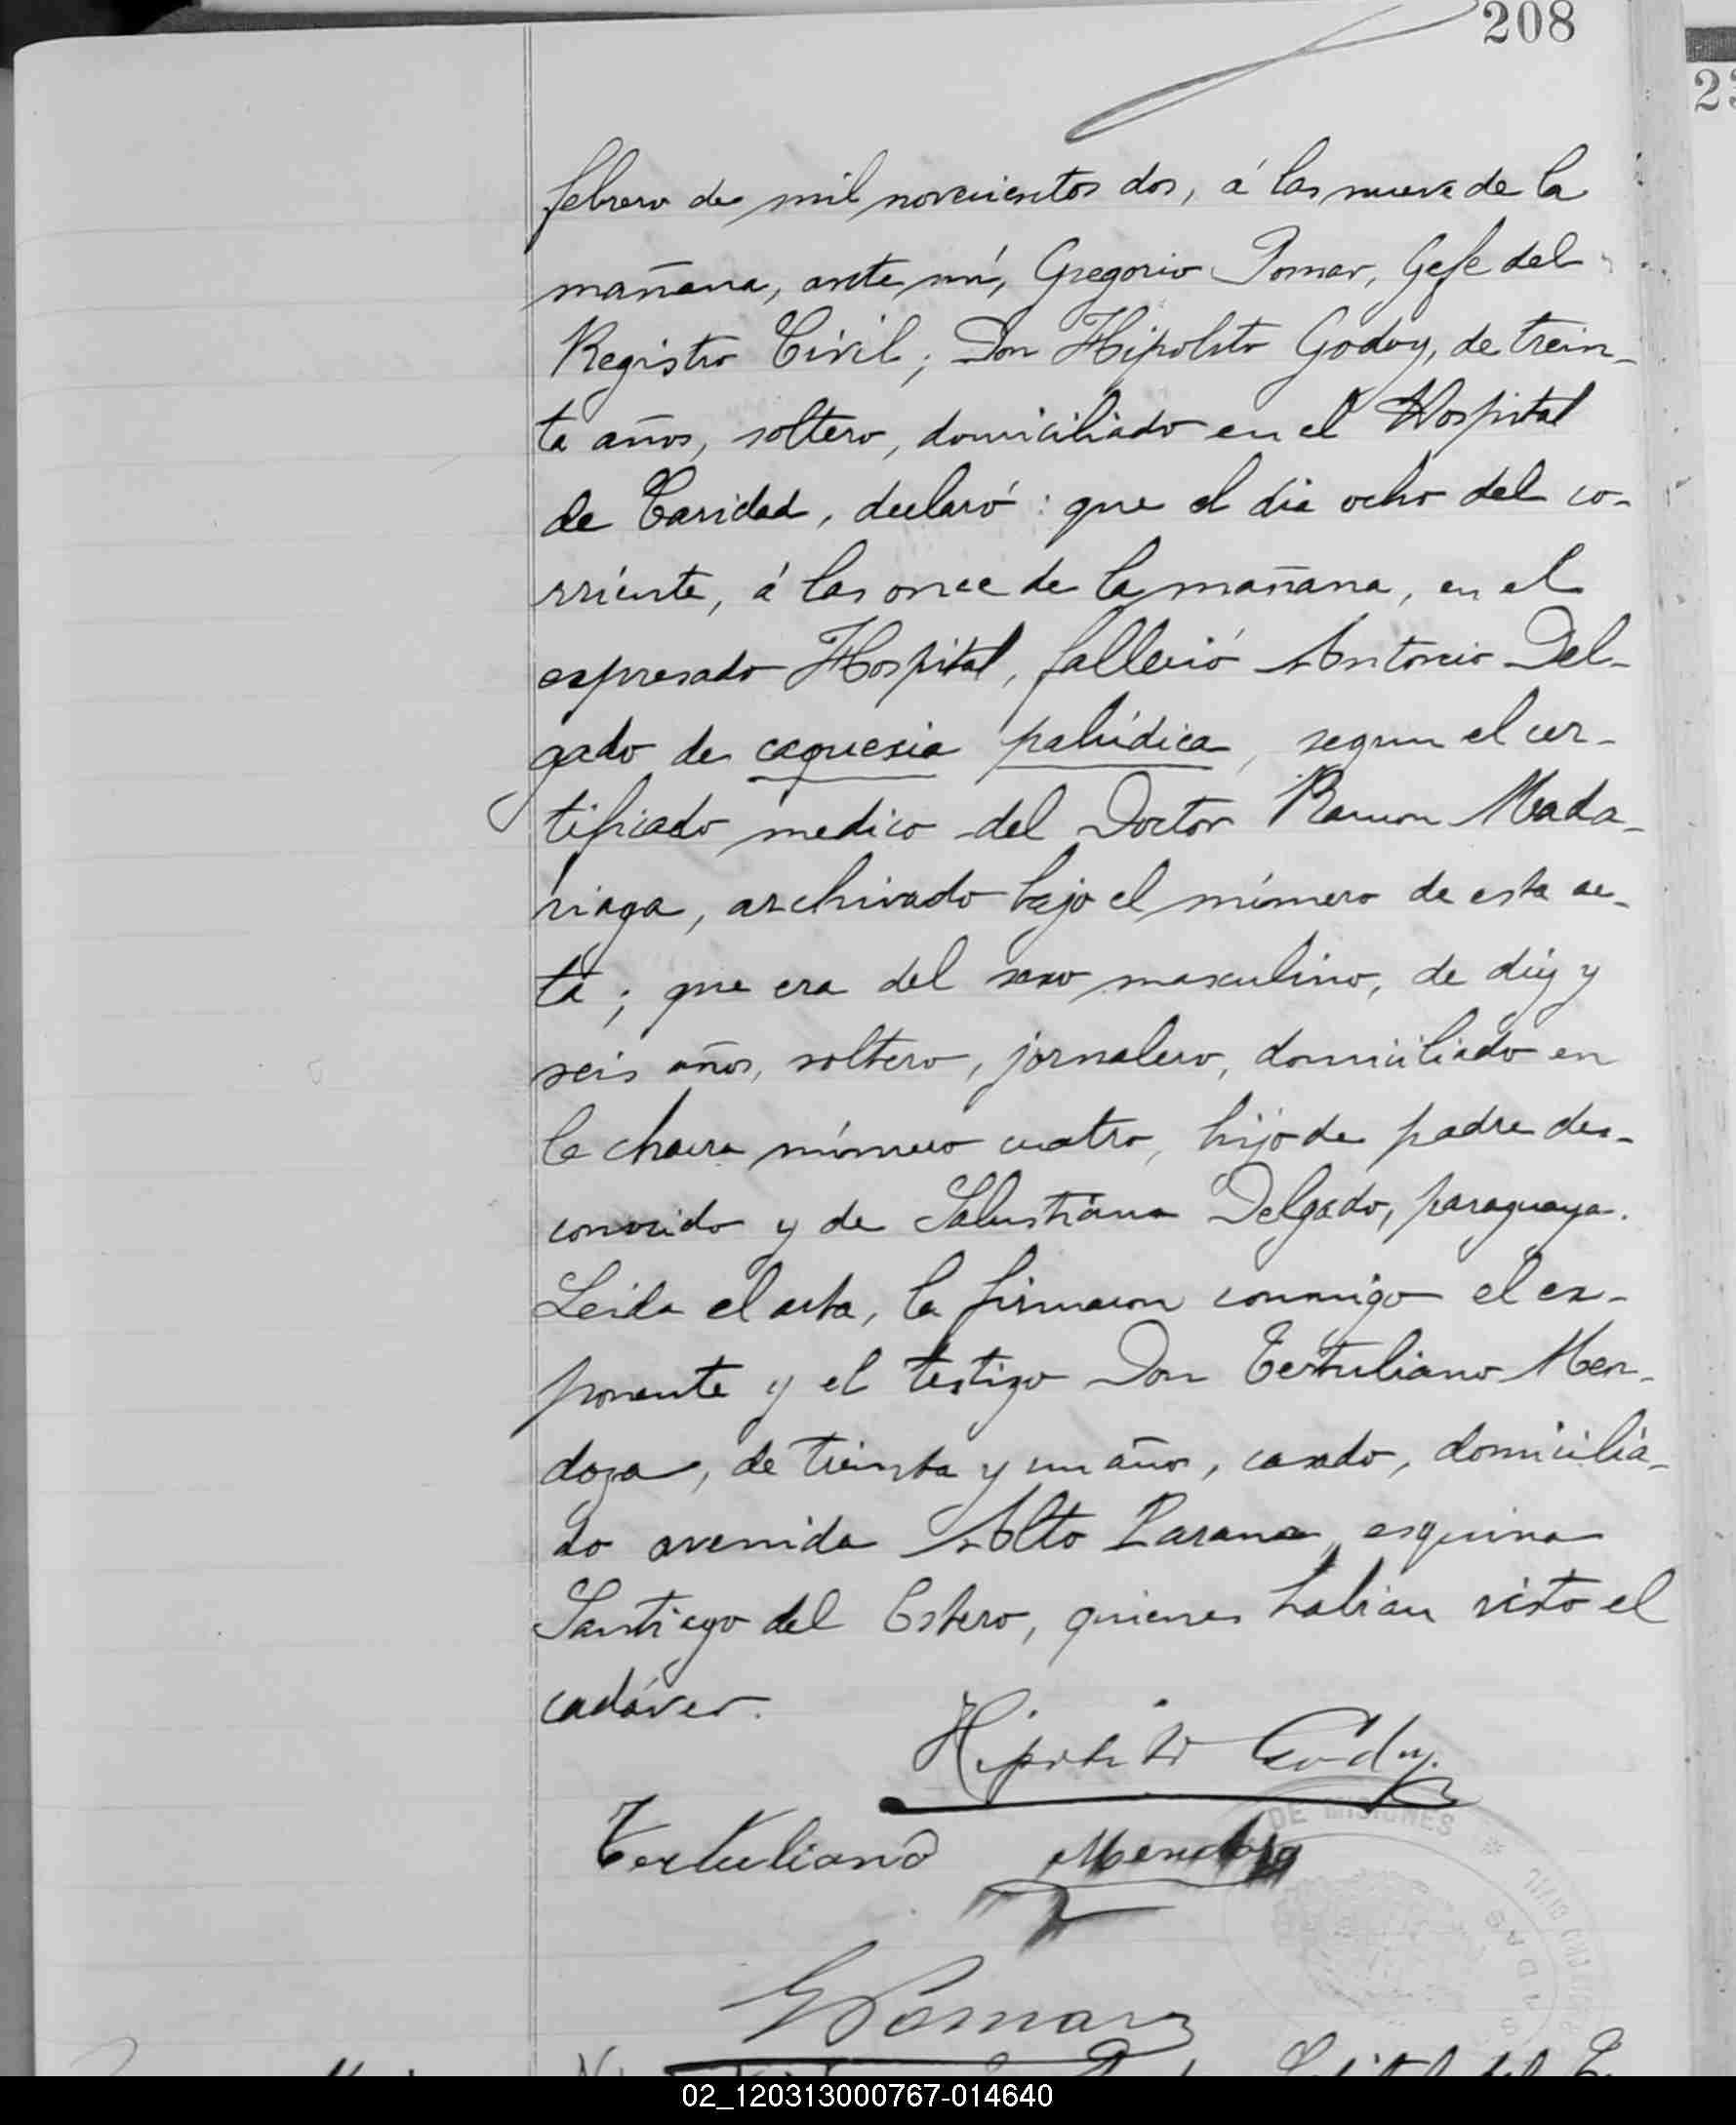 208
febrero de mil novecientos dos, á las nueve de la
mañana, ante mí, Gregorio Pomar, Gefe del
Registro Civil; Don Hipolito Godoy, de trein-
ta años, soltero, domiciliado en el Hospital
de Caridad, declaró: que el dia ocho del co-
rriente, á las once de la mañana, en el
espresado Hospital, falleció Antonio Del-
gado de caquexia palúdica, segun el cer-
tificado medico del Doctor Ramon Mada-
riaga, archivado bajo el número de esta ac-
ta; que era del sexo masculino, de diez y
seis años, soltero, jornalero, domiciliado en
la chacra número cuatro, hijo de padre des-
conocido y de Salustiana Delgado, paraguaya.
Leida el acta, la firmaron conmigo el ex-
ponente y el testigo Don Tertuliano Men-
doza, de treinta y un años, casado, domicilia-
do avenida Alto Parana esquina
Santiago del Estero, quienes habian visto el
cadáver.
Hipolito Godoy.
Tertuliano Mendoza
DE MISIONES
GPomar
02_120313000767-014640